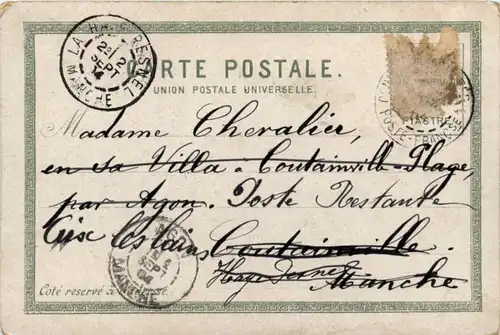 LA HAYE-PESNEL
MANCHE
CARTE POSTALE.
UNION POSTALE UNIVERSELLE.
PIASTRE
POSTE-FRANÇSE
Madame Chevalier,
en sa Villa - Coutainville-Plage,
par Agon. Poste Restante
Aix les bains Coutainville.
Haye Pesnel Manche
MANCHE
Coté réservé à